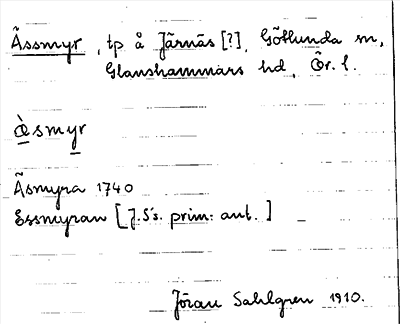 Ässmyr, tp å Järnäs [?], Götlunda sn,
Glanshammars hd, Ör. l.
ὲsmyr
Äsmyra 1740
Essmyran [J.S's. prim. ant.]
Jöran Sahlgren 1910.